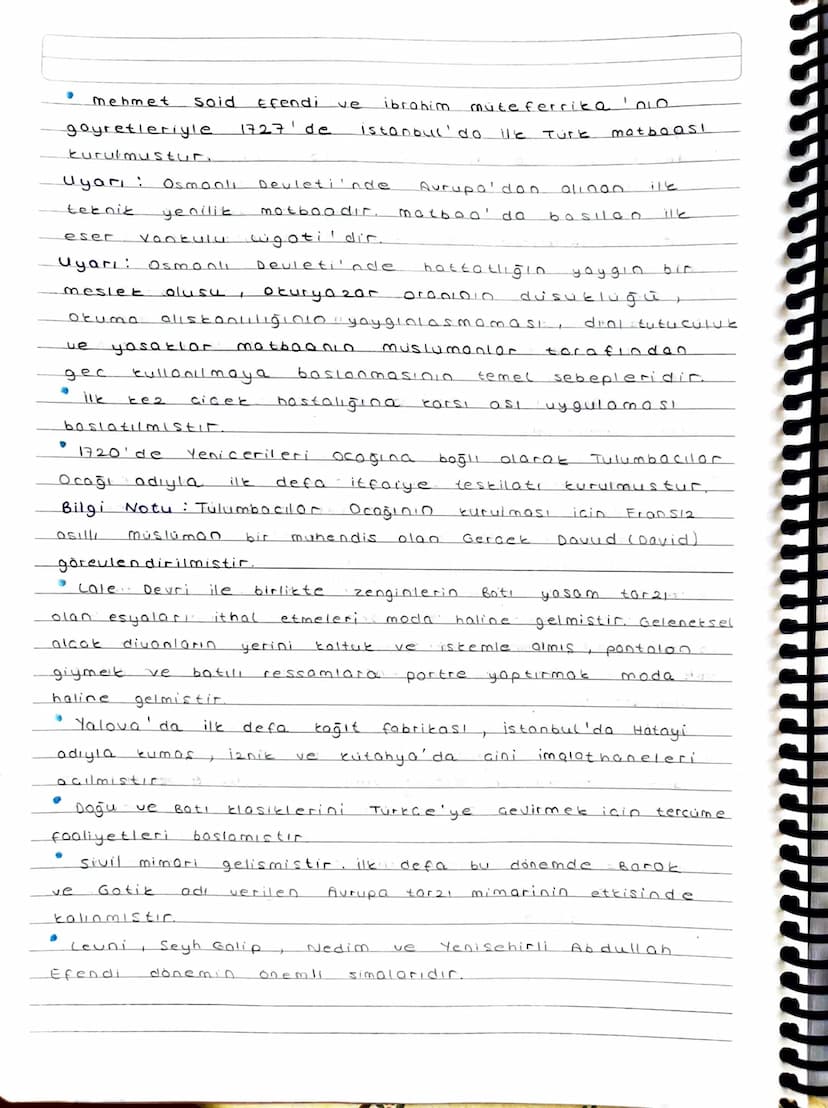 • Mehmet Said Efendi ve İbrahim Müteferrika'nın
gayretleriyle 1727'de İstanbul'da ilk Türk matbaası
kurulmustur.
Uyarı : Osmanlı Devleti'nde Avrupa'dan alınan ilk
teknik yenilik matbaadır. Matbaa'da basılan ilk
eser Vankulu Lügati'dir.
Uyarı : Osmanlı Devleti'nde hattatlığın yaygın bir
meslek olusu , okuryazar oranının düsüklüğü ,
okuma alıskanlılığının yaygınlasmaması , dini tutuculuk
ve yasaklar matbaanın müslümanlar tarafından
gec kullanılmaya baslanmasının temel sebepleridir.
• İlk kez cicek hastalığına karsı ası uygulaması
baslatılmıstır.
• 1720'de Yenicerileri ocağına bağlı olarak Tulumbacılar
Ocağı adıyla ilk defa itfaiye teskilatı kurulmustur.
Bilgi Notu : Tulumbacılar Ocağının kurulması icin Fransız
asıllı müslüman bir muhendis olan Gercek Davud (David)
görevlendirilmistir.
• Lale Devri ile birlikte zenginlerin Batı yasam tarzı
olan esyaları ithal etmeleri moda haline gelmistir. Geleneksel
alcak divanların yerini koltuk ve iskemle almıs , pantolon
giymek ve batılı ressamlara portre yaptırmak moda
haline gelmistir.
• Yalova'da ilk defa kağıt fabrikası , İstanbul'da Hatayi
adıyla kumas , İznik ve Kütahya'da cini imalathaneleri
acılmıstır.
• Doğu ve Batı klasiklerini Türkce'ye cevirmek icin tercüme
faaliyetleri baslamıstır.
• Sivil mimari gelismistir. İlk defa bu dönemde Barok
ve Gotik adı verilen Avrupa tarzı mimarinin etkisinde
kalınmıstır.
• Levni , Seyh Galip , Nedim ve Yenisehirli Abdullah
Efendi dönemin önemli simalarıdır.